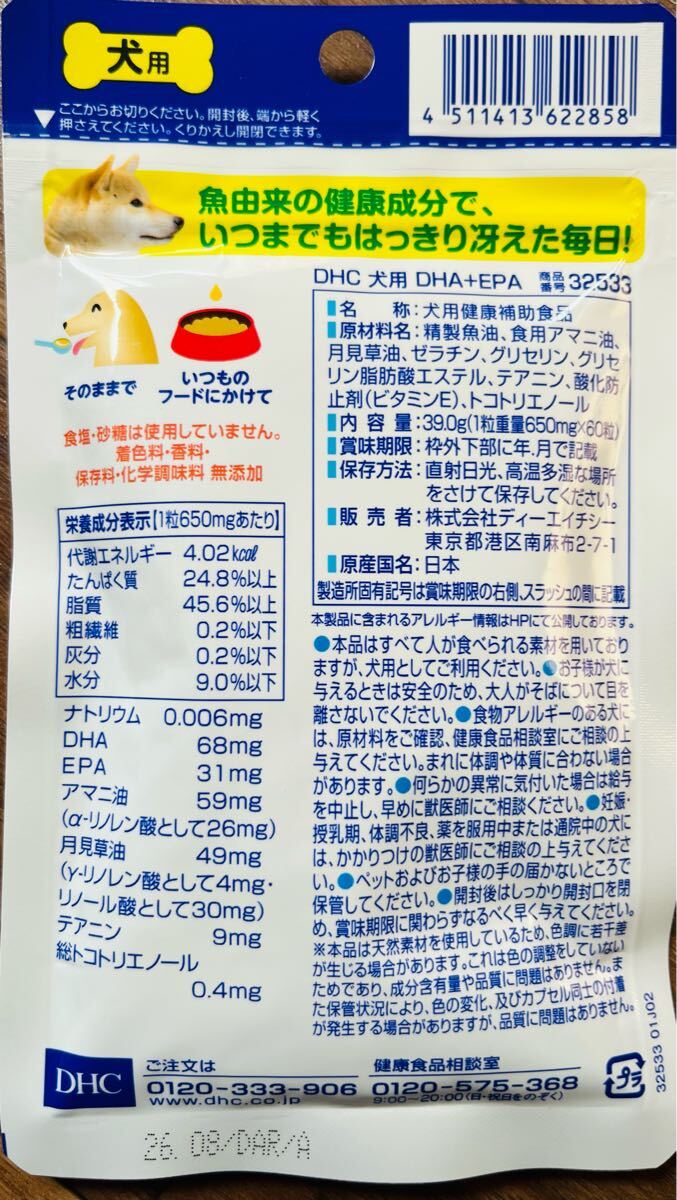 犬用
ここからお切りください。開封後、端から軽く
押さえてください。くりかえし開閉できます。
4 511413 622858
魚由来の健康成分で、
いつまでもはっきり冴えた毎日!
そのままで
いつもの
フードにかけて
食塩・砂糖は使用していません。
着色料・香料・
保存料・化学調味料 無添加
栄養成分表示【1粒650mgあたり】
代謝エネルギー 4.02kcal
たんぱく質 24.8%以上
脂質 45.6%以上
粗繊維 0.2%以下
灰分 0.2%以下
水分 9.0%以下
ナトリウム 0.006mg
DHA 68mg
EPA 31mg
アマニ油 59mg
(α-リノレン酸として26mg)
月見草油 49mg
(γ-リノレン酸として4mg・
リノール酸として30mg)
テアニン 9mg
総トコトリエノール
0.4mg
DHC 犬用 DHA+EPA 商品番号 32533
名 称:犬用健康補助食品
原材料名:精製魚油、食用アマニ油、
月見草油、ゼラチン、グリセリン、グリセ
リン脂肪酸エステル、テアニン、酸化防
止剤(ビタミンE)、トコトリエノール
内 容 量:39.0g(1粒重量650mg×60粒)
賞味期限:枠外下部に年.月で記載
保存方法:直射日光、高温多湿な場所
をさけて保存してください。
販 売 者:株式会社ディーエイチシー
東京都港区南麻布2-7-1
原産国名:日本
製造所固有記号は賞味期限の右側、スラッシュの間に記載
本製品に含まれるアレルギー情報はHPにて公開しております。
●本品はすべて人が食べられる素材を用いており
ますが、犬用としてご利用ください。●お子様が犬に
与えるときは安全のため、大人がそばについて目を
離さないでください。●食物アレルギーのある犬に
は、原材料をご確認、健康食品相談室にご相談の上
与えてください。まれに体調や体質に合わない場合
があります。●何らかの異常に気付いた場合は給与
を中止し、早めに獣医師にご相談ください。●妊娠・
授乳期、体調不良、薬を服用中または通院中の犬に
は、かかりつけの獣医師にご相談の上与えてくださ
い。●ペットおよびお子様の手の届かないところで
保管してください。●開封後はしっかり開封口を閉
め、賞味期限に関わらずなるべく早く与えてください。
※本品は天然素材を使用しているため、色調に若干差
が生じる場合があります。これは色の調整をしていない
ためであり、成分含有量や品質に問題はありません。ま
た保管状況により、色の変化、及びカプセル同士の付着
が発生する場合がありますが、品質に問題はありません。
DHC
ご注文は
0120-333-906
www.dhc.co.jp
健康食品相談室
0120-575-368
9:00〜20:00(日・祝日をのぞく)
プラ
32533 01J02
26. 08/DAR/A